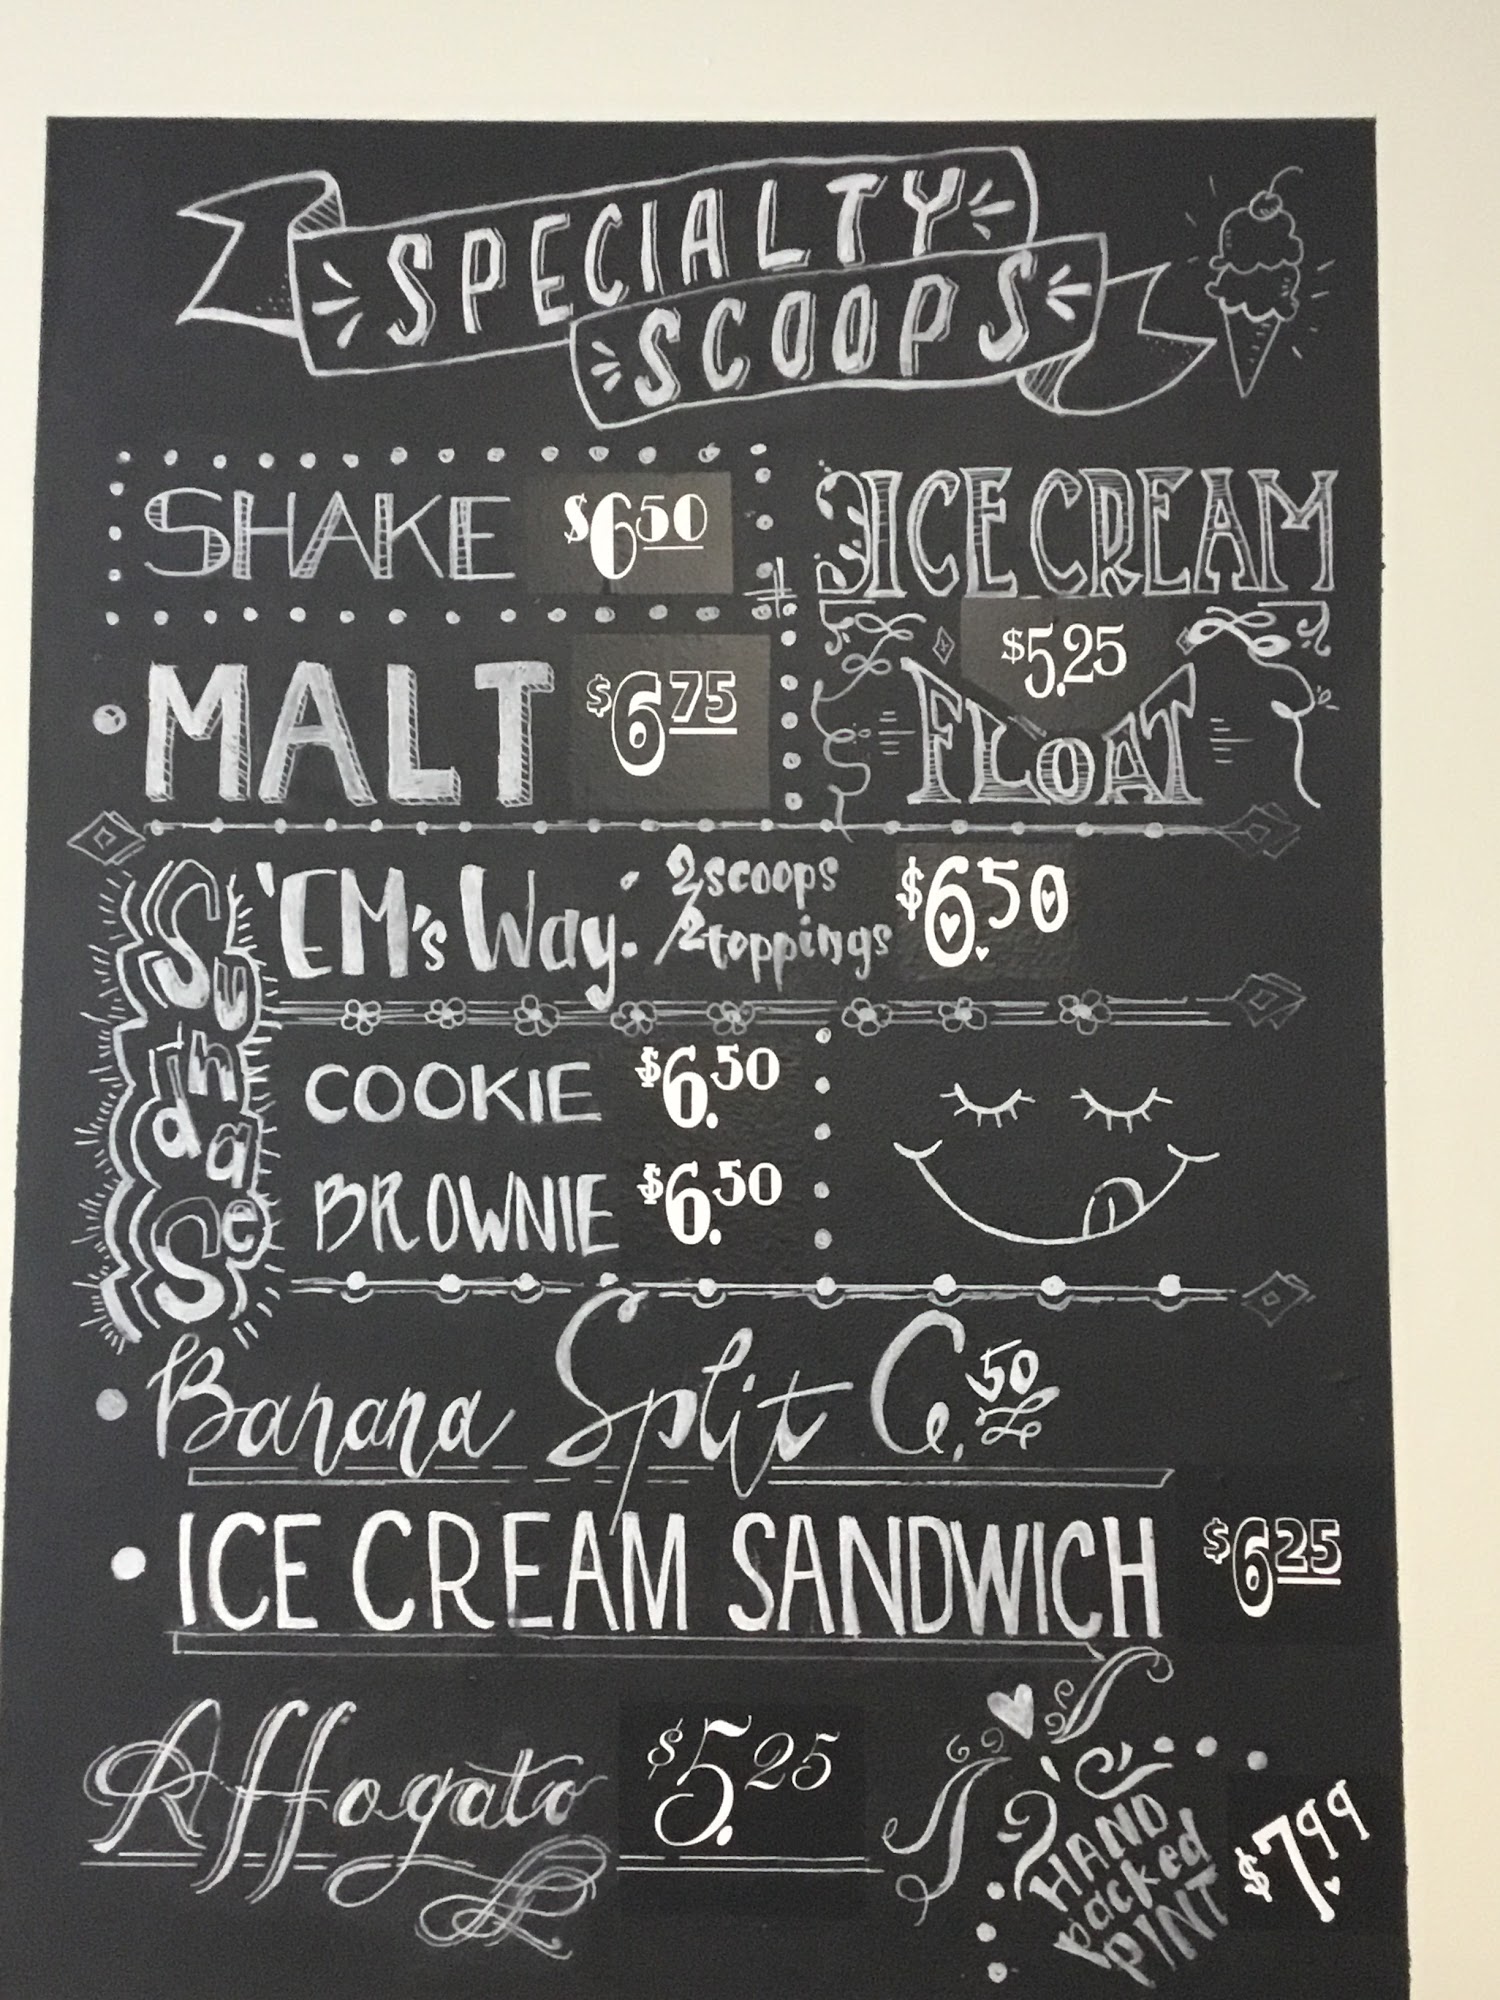 SPECIALTY
SCOOPS
SHAKE $6.50
MALT $6.75
ICE CREAM
$5.25
FLOAT
Sundaes
'EM's Way: 2 scoops $6.50
/2 toppings
COOKIE $6.50
BROWNIE $6.50
Banana Split 6.50
ICE CREAM SANDWICH $6.25
Affogato $5.25
HAND
packed
PINT
$7.99